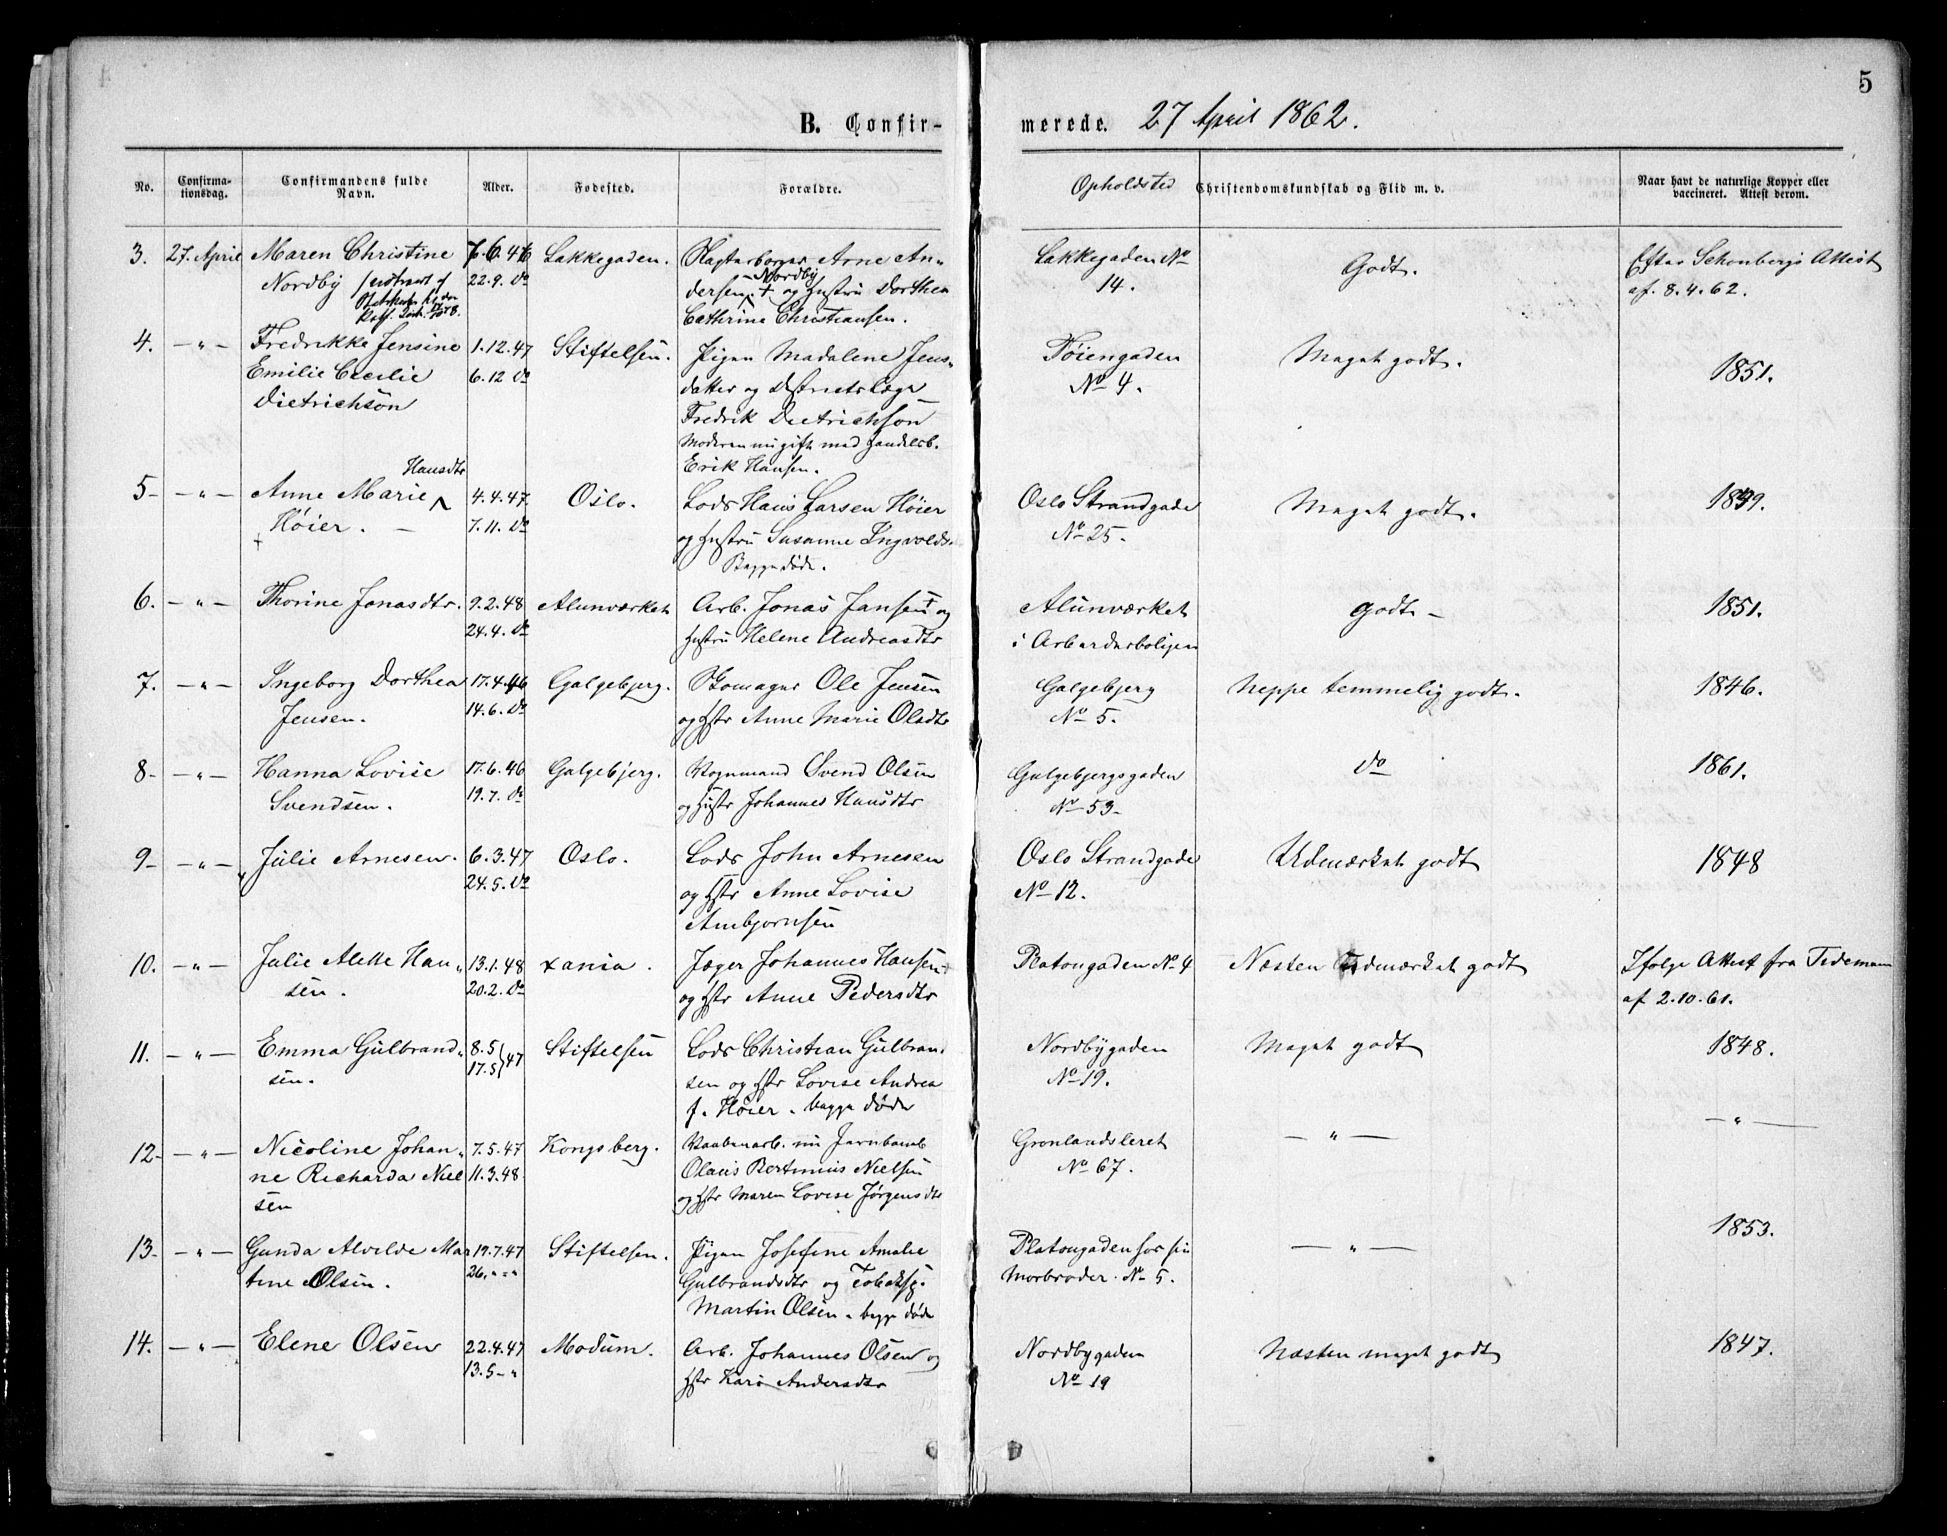 5
B. Confir- merede. 27 April 1862.
No. Confirma-tionsdag. Confirmandens fulde Navn. Alder. Fødested. Forældre. Opholdsted Christendomskundskab og Flid m. v. Naar havt de naturlige Kopper eller vaccineret. Attest derom.
3. 27. April Maren Christine 7.6.46 Lakkegaden. Arne An- Lakkegaden No Godt. Efter Schønbergs Attest
Nordby 22.9. do dersen Nordby + og Hustru Dorthea 14. af 8.4.62.
Cathrine Christiansen.
4. — " — Fredrikke Jensine 1.12.47 Stiftelsen. Pigen Madalene Jens- Tøiengaden Meget godt. 1851.
Emilie Cecilie 6.12 do datter og Districtslæge No 4.
Dietrichson Fredrik Dietrichson
Moderen nu gift med Handelsb.
Erik Hansen.
5- — " — Anne Marie Hansdtr 4.4.47. Oslo. Lods Hans Larsen Høier Oslo Strandgade Meget godt. 1849.
Høier. — 7.11. do og Hustru Susanne Ingvolds. No 25.
+ Begge døde.
6. — " — Thorine Jonasdtr. 9.2.48 Alunværket Arb. Jonas Jansen + og Alunværket godt - 1851.
24.4. do Hustru Helene Andreasdtr i Arbeiderboligen
7. — " — Ingeborg Dorthea 17.4.46 Galgebjerg. Skomager Ole Jensen Galgebjerg Neppe temmelig godt. 1846.
Jensen. 14.6. do og Hstr Anne Marie Olsdtr No 5.
8- — " — Hanna Lovise 17.6.46 Galgebjerg. Vognmand Svend Olsen Galgebjergsgaden do 1861.
Svendsen. 19.7. do og Hustr Johannes Hansdtr No 53-
9- — " — Julie Arnesen. 6.3.47 Oslo. Lods John Arnesen Oslo Strandgade Udmærket godt 1848
24.5. do og Hstr Anne Lovise No 12.
Ambjørnsen
10. — " — Julie Alette Han- 13.1.48 Xania. Jæger Johannes Hansen Platougaden No 4 Næsten Udmærket godt Ifølge Attest fra Tidemann
sen. 20.2. do og Hstr Anne Pedersdtr af 2.10.61.
11. — " — Emma Gulbrand- 8.5 } 47 Stiftelsen Lods Christian Gulbran- Nordbygaden Meget godt 1848.
sen. 17.5 sen og Hstr Lovise Andrea No 19.
f. Høier. begge døde
12- — " — Nicoline Johan- 7.5.47 Kongsberg. Vaabenarb. nu Jernbaneb Grønlandsleret — " — — " —
ne Richarda Niel 11.3.48. Olaus Bertinius Nielsen No 67.
sen og Hstr Maren Lovise Jørgensdtr
13- — " — Gunda Alvilde Mar 19.7.47 Stiftelsen. Pigen Josefine Amalie Platougaden hos sin — " — 1853.
tine Olsen. 26. " - " Gulbrandsdtr og Tobaksp. Morbroder. No 5.
Martin Olsen. begge døde
14. — " — Elene Olsen 22.4.47 Modum. Arb. Johannes Olsen og Nordbygaden Næsten meget godt 1847.
13.5 - " Hstr Kari Andersdtr No 19